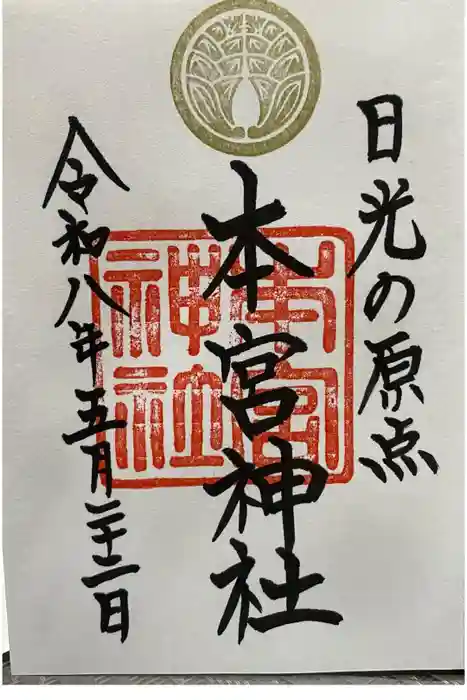 日光の原点
本宮神社
本宮神社
令和八年五月二十二日